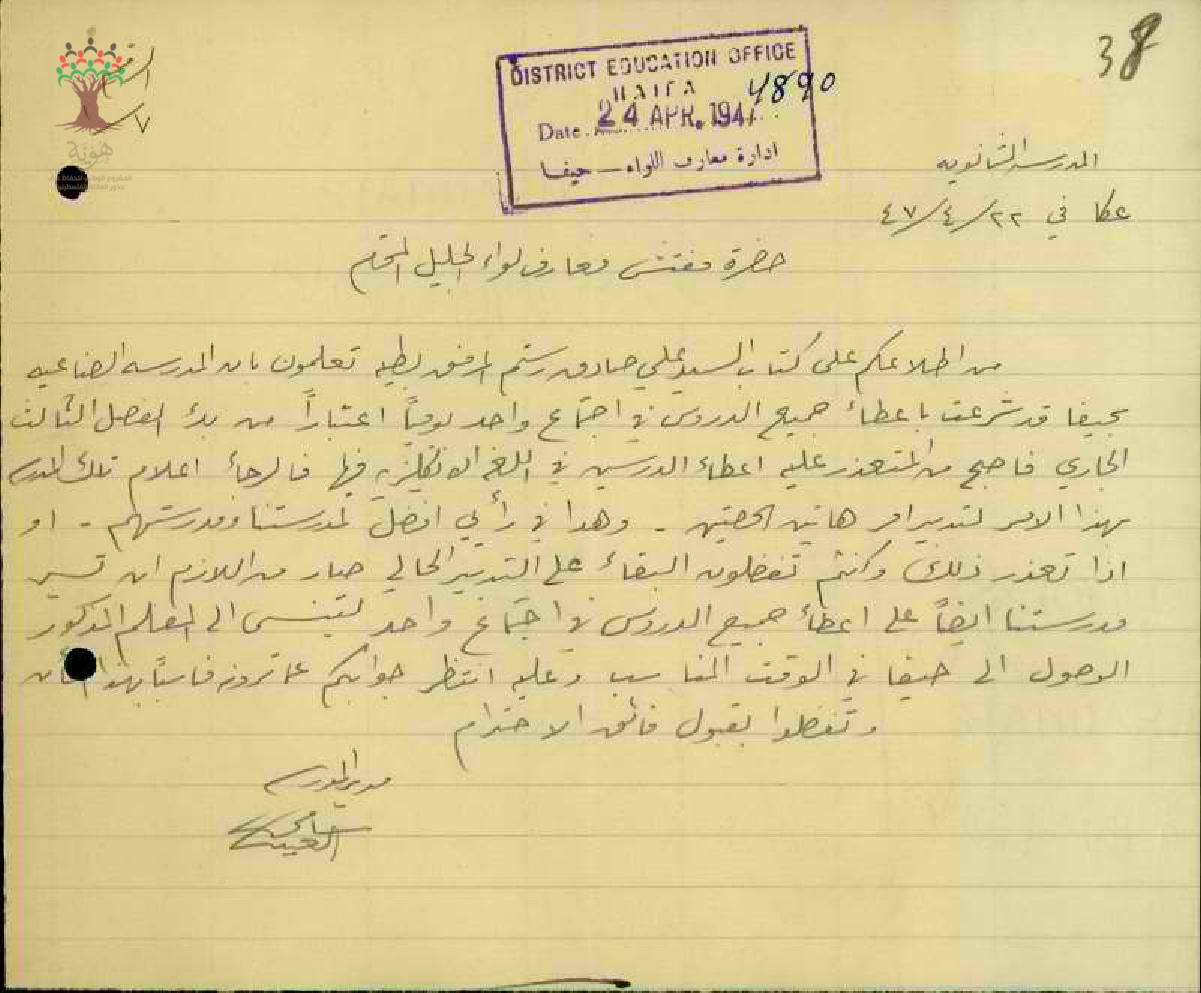 38
DISTRICT EDUCATION OFFICE
HAIFA 4890
Date 24 APR. 1947
ادارة معارف اللواء — حيفا
الرقم
٧
هويّة
المدرسة الثانويه
عكا في ٢٢/٤/٤٧
حضرة مفتش معارف لواء الجليل المحترم
من اطلاعكم على كتاب السيد علي صادق رستم المرفق بطيه تعلمون بان المدرسه الصناعيه
بحيفا قد شرعت باعطاء جميع الدروس في اجتماع واحد يومياً اعتباراً من بدء الفصل الثالث
الجاري فاصبح من المتعذر عليه اعطاء الدرسين في اللغه الانكليزيه فيها فالرجاء اعلام تلك المدرسه
بهذا الامر لتدبير امر هاتين الحصتين - وهذا في رأيي افضل لمدرستنا ومدرستهم - او
اذا تعذر ذلك وكنتم تفضلون البقاء على التدبير الحالي صار من اللازم ان تسير
مدرستنا ايضاً على اعطاء جميع الدروس في اجتماع واحد ليتسنى الى المعلم المذكور
الوصول الى حيفا في الوقت المناسب وعليه انتظر جوابكم عما ترونه مناسباً بهذا الشان
وتفضلوا بقبول فائق الاحترام
مدير المدرسه